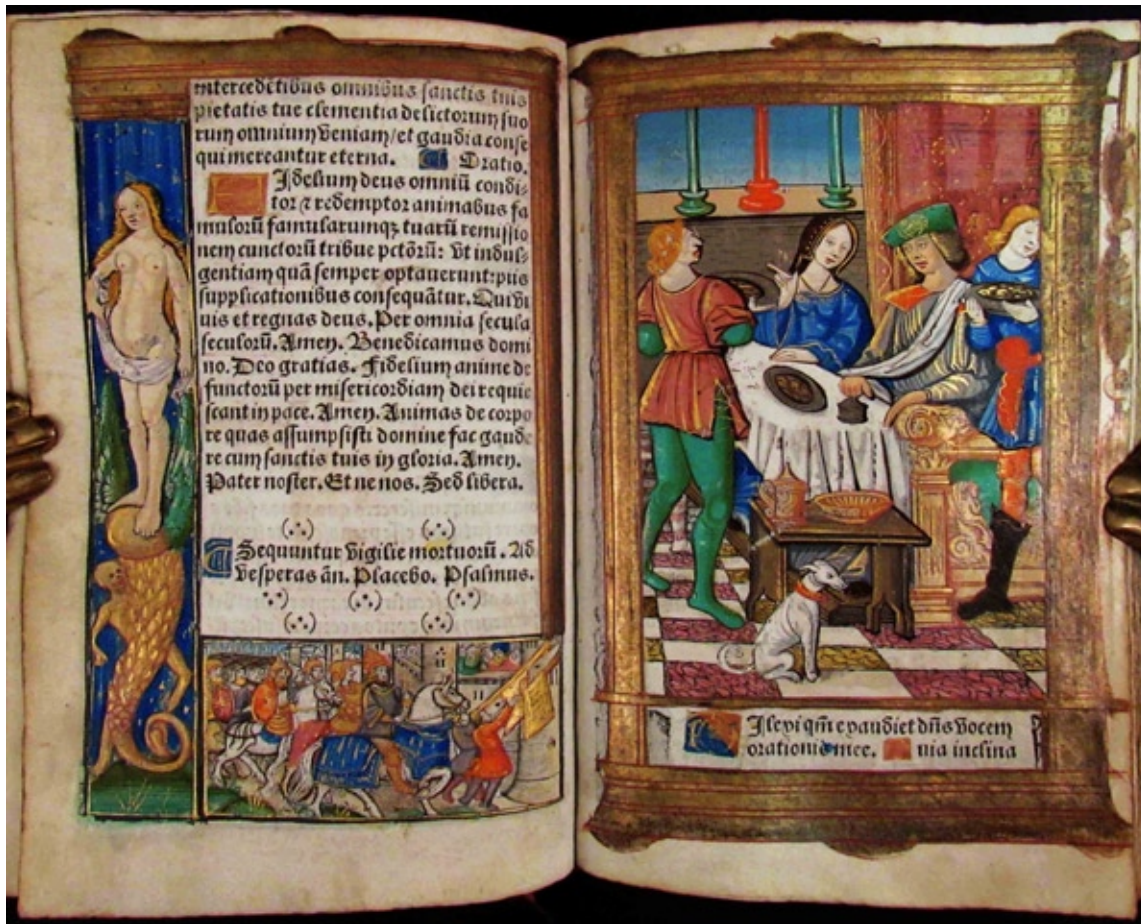 intercedẽtibus omnibus sanctis tuis
pietatis tue clementia delictorum suo
rum omnium veniam/et gaudia conse
qui mereantur eterna. Oratio.
Fidelium deus omniũ condi⸗
tor ⁊ redemptor animabus fa
mulorũ famularumqꝫ tuarũ remissio
nem cunctorũ tribue pctõrũ: vt indul⸗
gentiam quã semper optauerunt:piis
supplicationibus consequãtur. Qui vi
uis et regnas deus. Per omnia secula
seculorũ. Amen. Benedicamus domi
no. Deo gratias. Fidelium anime de
functorũ per misericordiam dei requie
scant in pace. Amen. Animas de corpo
re quas assumpsisti domine fac gaude
re cum sanctis tuis in gloria. Amen.
Pater noster. Et ne nos. Sed libera.
Sequuntur vigilie mortuorũ. Ad
vesperas ãn. Placebo. Psalmus.
Dilexi qm̃ exaudiet dñs vocem
orationis mee. Quia inclina